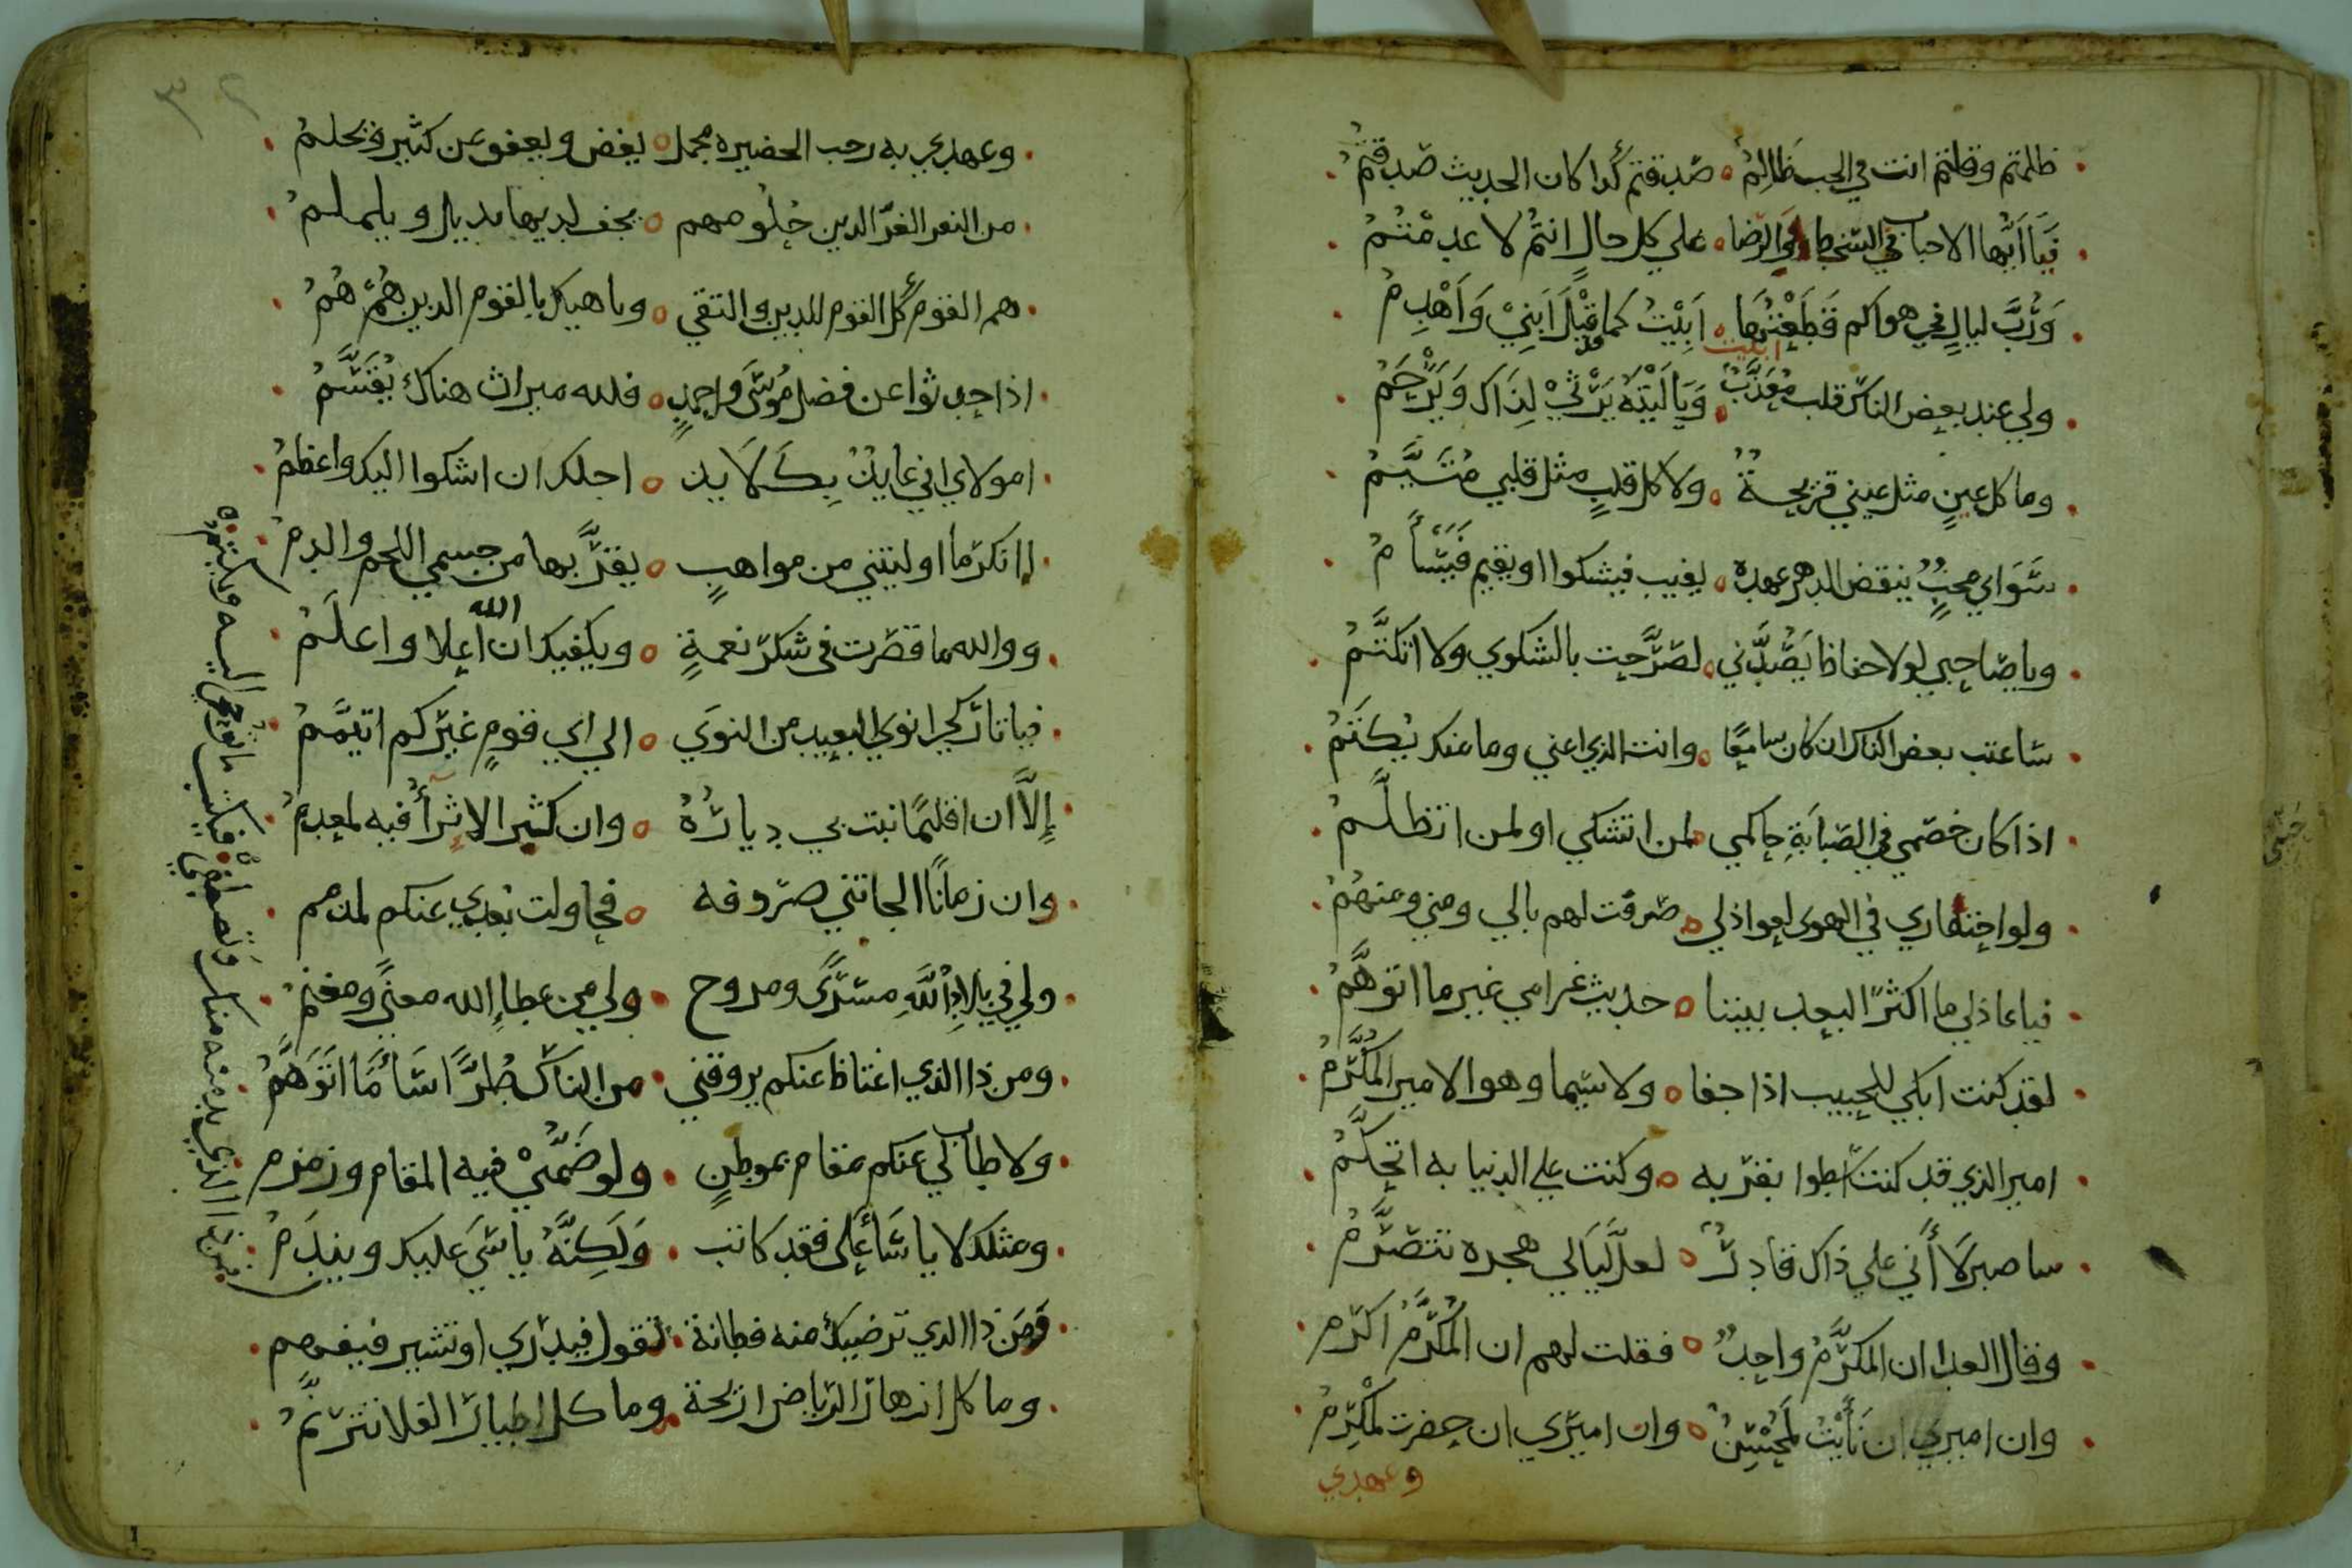 ظلمتم وقلتم انت في الحب ظالِمُ صدقتم كذا كان الحديث صدقتمُ
فيا ايها الاحباب في السخط او في الرضا علي كل حالٍ انتمُ لا عدمتُمُ
وَرُبَّ ليالٍ في هواكم قَطَعْتُهَا أبِيْتُ كما قد قِيْلَ ابني وَاهْدِمُ
ابكيت
ولي عند بعض الناس قلب معذبٌ ويا ليْتَهُ يَرْثي لِذَاك وَيَرْحَمُ
وما كل عينٍ مثل عيني قريحةٌ ولا كل قلبٍ مثل قلبي مُتَيَّمُ
سواي محبٌ ينقض الدهر عهده يغيب فيشكوا او يقيم فَيَسْأمُ
ويا صاحبي لولا حفاظا يصُدّني لصرّحت بالشكوي ولا اتكتَّمُ
ساعتب بعض الناس ان كان سامعًا وانت الذي اعني وما عنك يُكتَمُ
اذا كان خصمي في الصبابةِ حاكمي لمن اتشكي او لمن اتظلَّمُ
ولولا احتقاري في الهوي لعواذلي صرفت لهم بالي ومني ومنهُمُ
فيا عاذلي ما اكثر البعد بيننا حديث غرامي غير ما اتوهَّمُ
لقد كنت ابكي للحبيب اذا جفا ولا سيما وهو الامير المُكَرَّمُ
امير الذي قد كنت اسطوا بقربه وكنت علي الدنيا به اتحكَّمُ
ساصبر لا أنّي علي ذاك قادرٌ لعل ليالي هجره تتصَرَّمُ
وقال العدا ان المكرَّمُ واحدٌ فقلت لهم ان المُكَرَّمُ اكرم
وان اميري ان نأيْتُ لمُحْسِنٌ وان اميري ان حضرت لمُكْرِمُ
وعهدي
وعهدي به رحب الحضيره مجمل يغض ويعفو عن كثير ويحلمُ
من النفر الغرّ الذين حلُومهم يخف لديها يذبل ويلملمُ
هم القوم كل القوم للدين والتقي وناهيك بالقوم الذين همُ هُمُ
اذا حدثوا عن فضل مُوسَى واحمدٍ فلله ميراث هناك يُقَسَّمُ
امولاي اني عايذٌ بِكَ لايذ اجلك ان اشكوا اليك واعظمُ
اانكر ما اوليتني من مواهبٍ يقرُّ بها من جسمي اللحم والدم
ووالله ما قصّرت في شكر نعمةٍ ويكفيك ان الله اعلا واعلَمُ
فيا تاركي انوي البعيد من النوَي الي اي قومٍ غيركم اتيمَّمُ
إلاّ ان اقليمًا نبت بي ديارُهُ وان كثير الاثرأ فيه لمعدِمُ
وان زمانًا الجاتني صروفه فحاولت بُعدي عنكم لمذمم
ولي في بلادِ اللَّهِ مسرًى ومروح ولي من عطاءِ الله مغنًى ومغنمُ
ومن ذا الذي اعتاظ عنكم يروقني من الناس طُرًّا سَأمَّا اتَوَهَّمُ
ولا طاب لي عنكم مقام بموطنٍ ولو ضَمَّنيْ فيه المقام وزمزم
ومثلك لا ياسَأ على فقد كاتب وَلَكِنَّهُ ياسَي عليك ويندَمُ
فَمَن ذا الذي ترضيك منه فطانة تقول فيدري او تشير فيفهم
وما كل ازهار الرياض اريحة وما كل اطيار الفلا تترنَّمُ